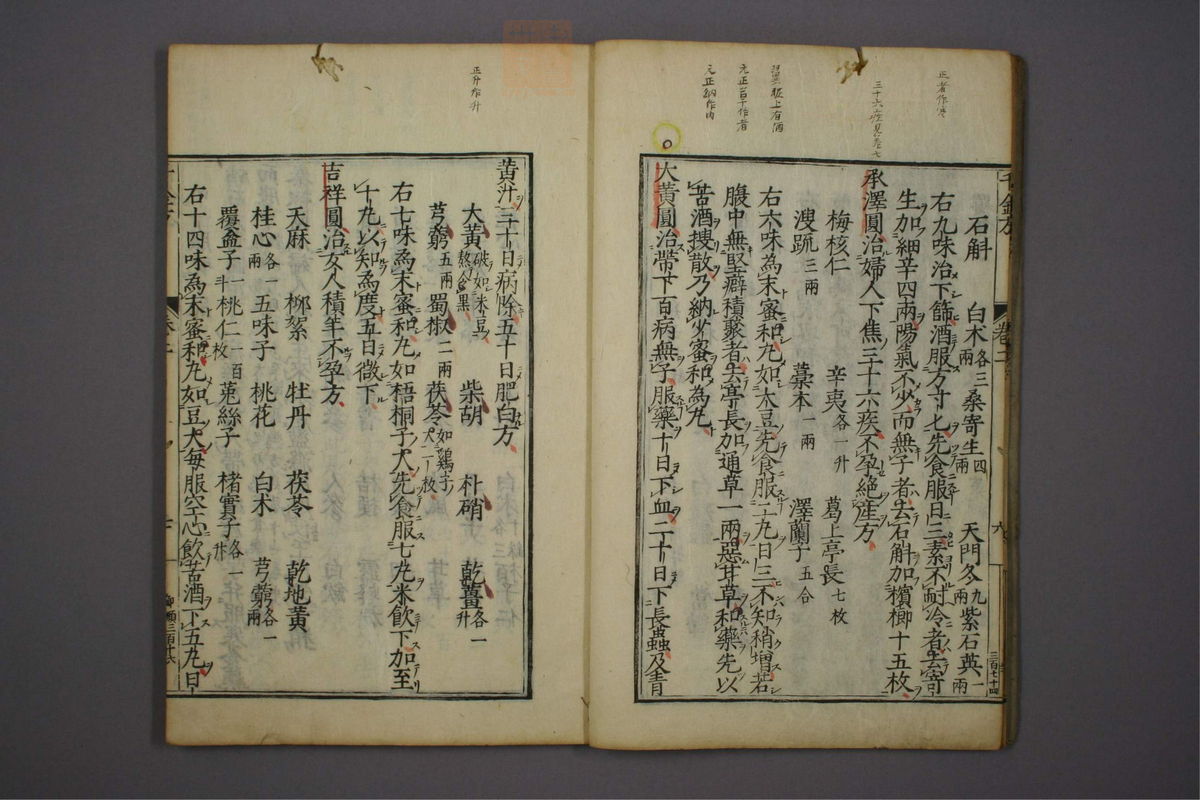 正者作煑
三十六疾見卷七
元正若下作者
元正納作内
千金方
卷二
六
三百七十四
石斛 白朮各三兩 桑寄生四兩 天門冬九兩 紫石英一兩
右九味治下篩酒服方寸匕先食服日三素不耐冷者去寄
生加細辛四兩陽氣不少而無子者去石斛加檳榔十五枚
承澤圓治婦人下焦三十六疾不孕絕產方
梅核仁 辛夷各一升 葛上亭長七枚
溲疏三兩 藁本一兩 澤蘭子五合
右六味為末蜜和丸如大豆先食服二丸日三不知稍增若
腹中無堅癖積聚者去亭長加通草一兩惡甘草和藥先以
苦酒搜散乃納少蜜和為丸
大黃圓治帶下百病無子服藥十日下血二十日下長蟲及青
正升作升
黃汁三十日病除五十日肥白方
大黃破如米豆熬令黑 柴胡 朴硝 乾薑各一升
芎藭五兩 蜀椒二兩 茯苓如鷄子大一枚
右七味為末蜜和丸如梧桐子大先食服七丸米飲下加至
十丸以知為度五日微下
吉祥圓治女人積年不孕方
天麻 柳絮 牡丹 茯苓 乾地黃
桂心各一兩 五味子 桃花 白朮 芎藭各一兩
覆盆子一斗 桃仁一百枚 菟絲子 楮實子各一升
右十四味為末蜜和丸如豆大每服空心飲苦酒下五丸日